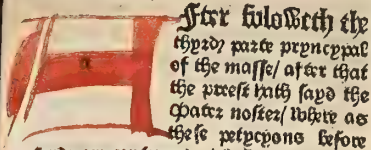 After foloweth the
thyrde parte pryncypal
of the masse/ after that
the preest hath sayd the
Pater noster/ where as
these petycyons before